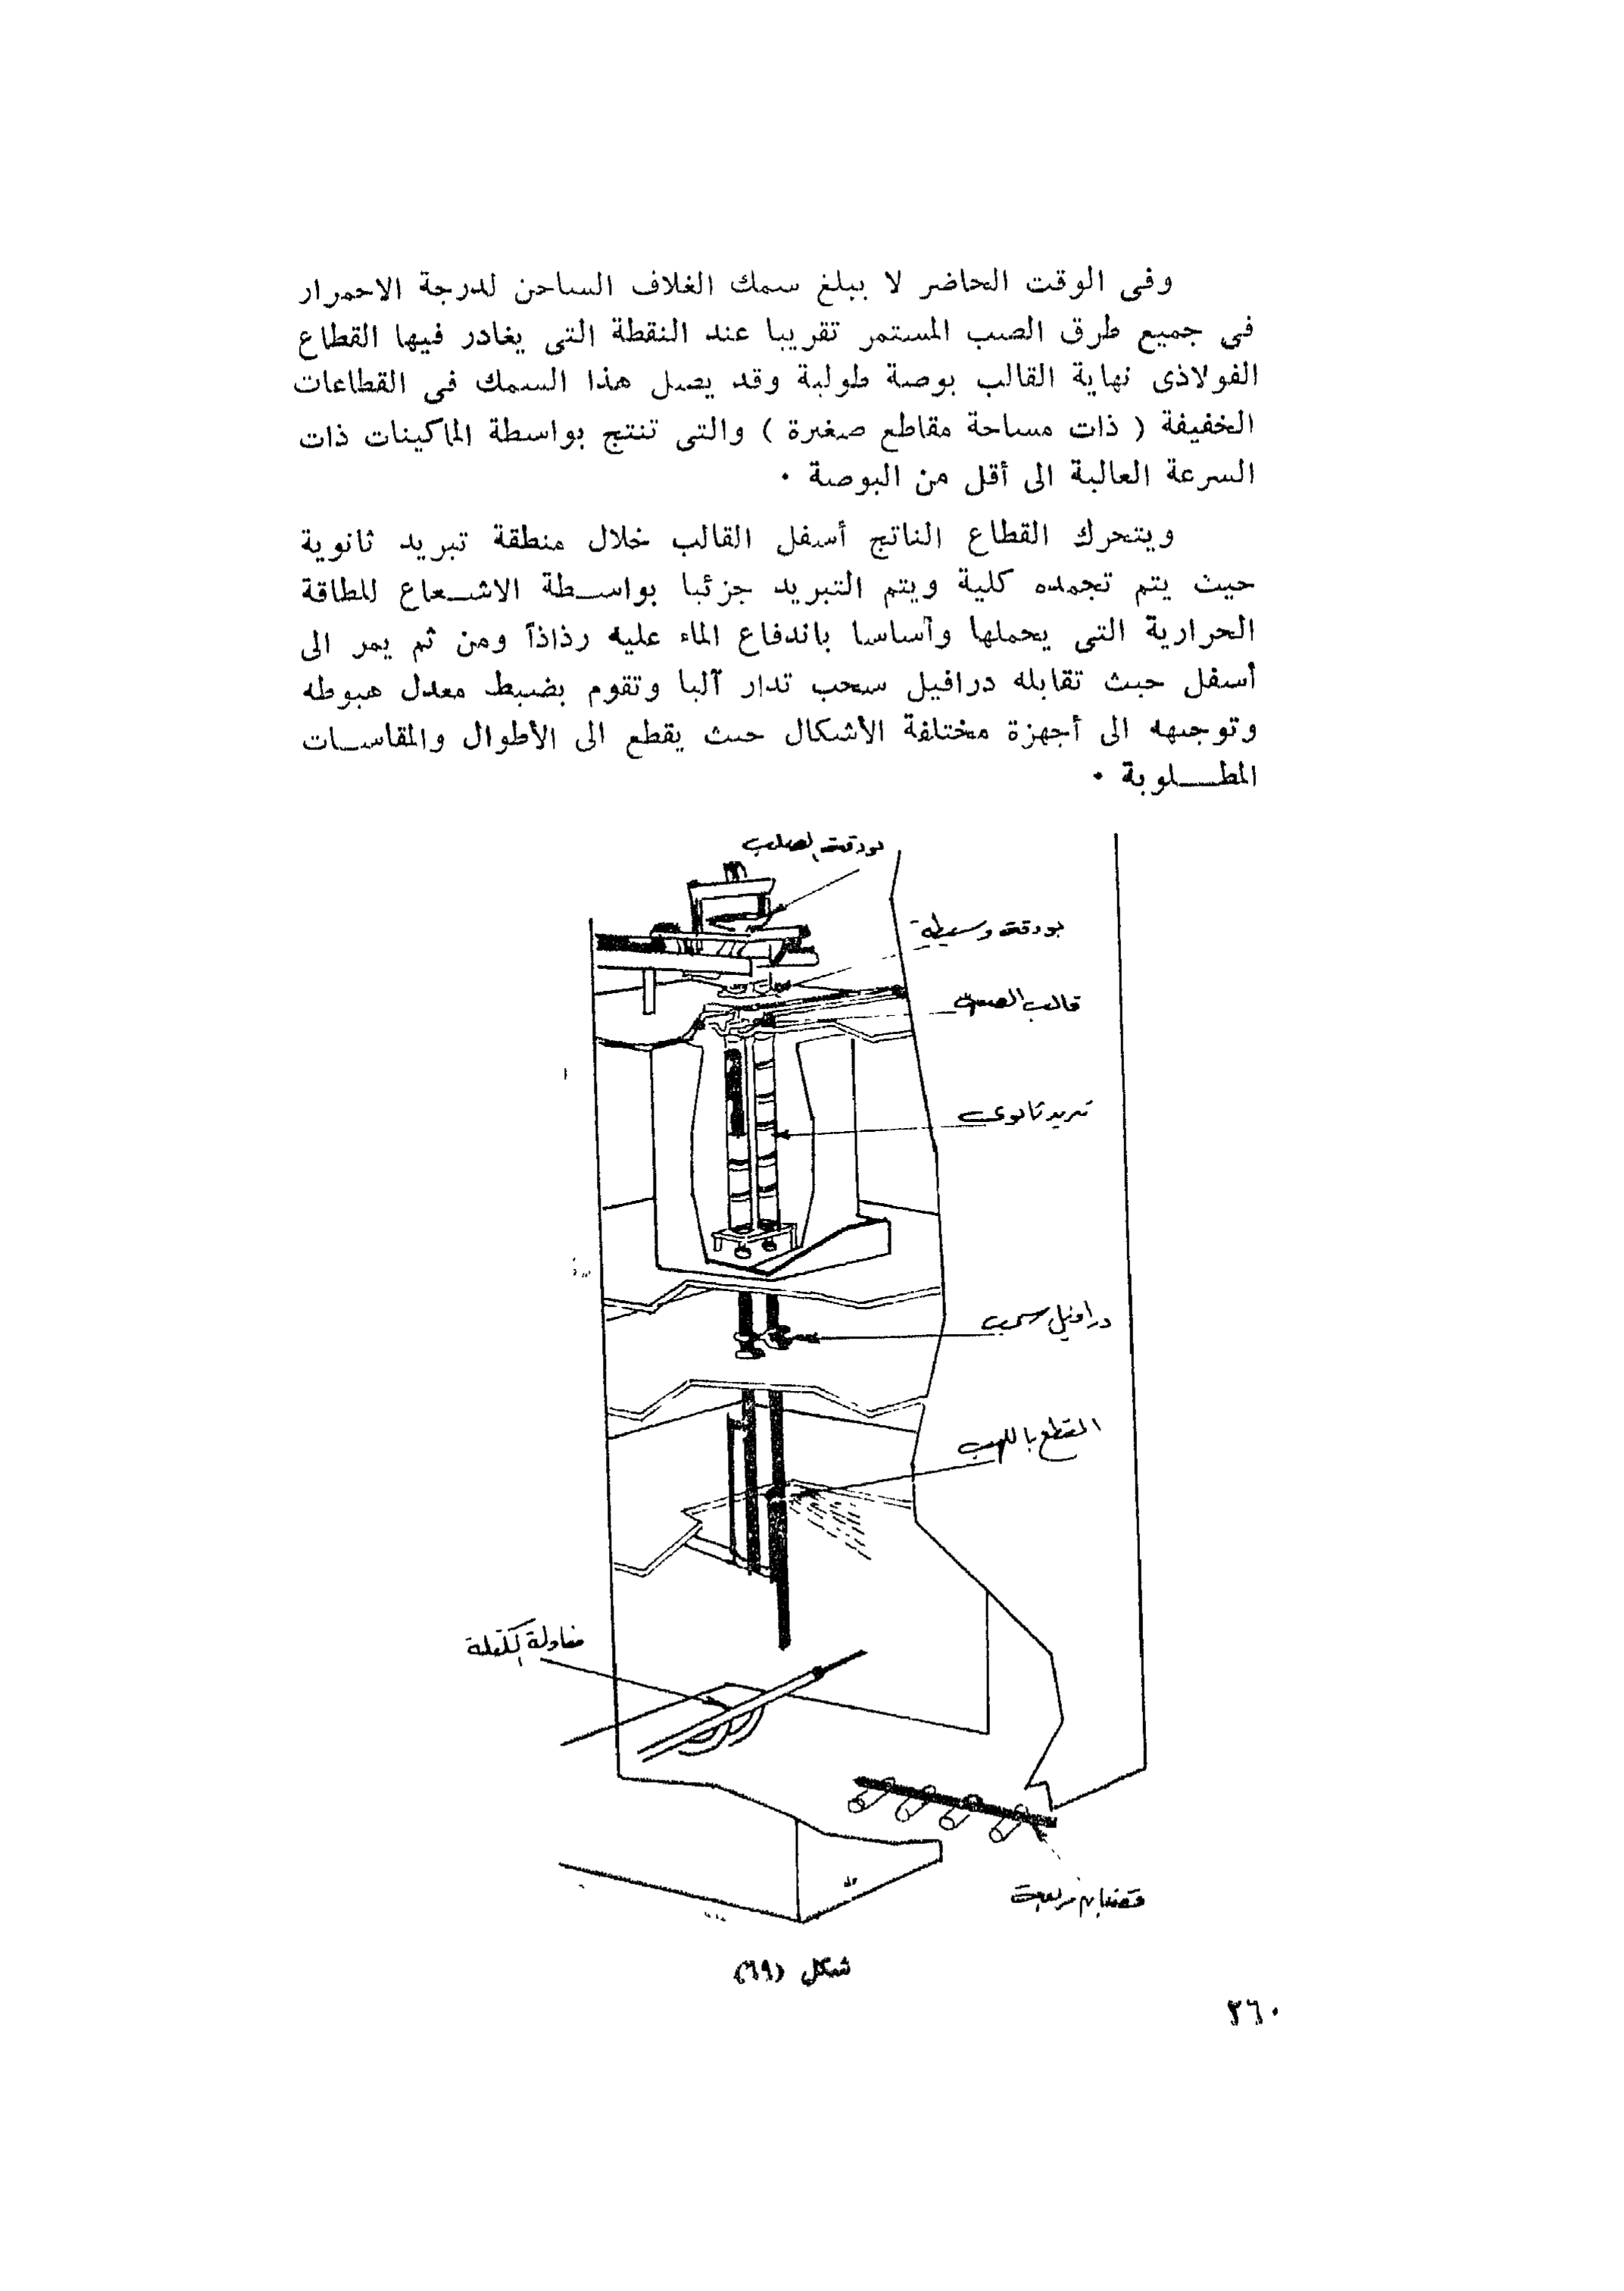 وفى الوقت الحاضر لا يبلغ سمك الغلاف الساخن لدرجة الاحمرار
فى جميع طرق الصب المستمر تقريبا عند النقطة التى يغادر فيها القطاع
الفولاذى نهاية القالب بوصة طولية وقد يصل هذا السمك فى القطاعات
الخفيفة ( ذات مساحة مقاطع صغيرة ) والتى تنتج بواسطة الماكينات ذات
السرعة العالية الى أقل من البوصة ٠
ويتحرك القطاع الناتج أسفل القالب خلال منطقة تبريد ثانوية
حيث يتم تجمده كلية ويتم التبريد جزئيا بواسـطة الاشـعاع للطاقة
الحرارية التى يحملها وأساسا باندفاع الماء عليه رذاذاً ومن ثم يمر الى
أسفل حيث تقابله درافيل سحب تدار آليا وتقوم بضبط معدل هبوطه
وتوجيهه الى أجهزة مختلفة الأشكال حيث يقطع الى الأطوال والمقاسـات
المطـــلوبة ٠
بودقة الصلب
بودقة وسيطية
قالب الصب
تبريد ثانوى
درافيل سحب
القطع باللهب
مناولة الكتلة
قضبان مربعة
شكل (٦٩)
٢٦٠